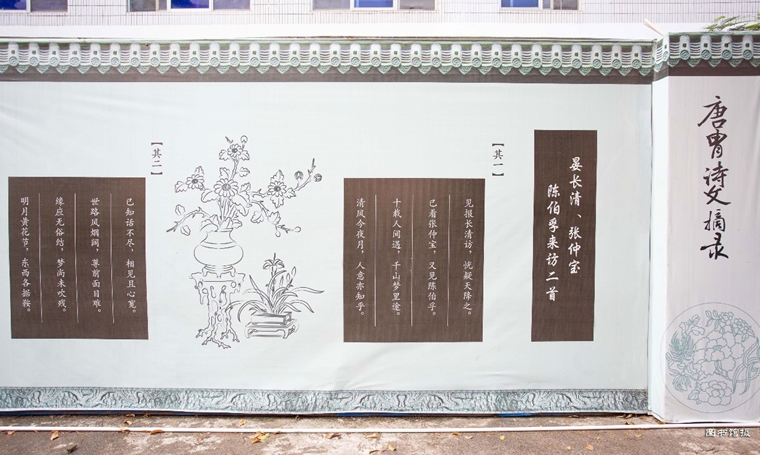 唐胄诗文摘录
晏长清、张仲宝
陈伯孚来访二首
【其一】
见报长清访，恍疑天降之。
已看张仲宝，又见陈伯孚。
十载人间远，千山梦里途。
清风今夜月，人意亦知乎。
【其二】
已知话不尽，相见且心宽。
世路风烟阔，尊前面目难。
缘应无俗结，梦尚未吹残。
明月黄花节，东西各据鞍。